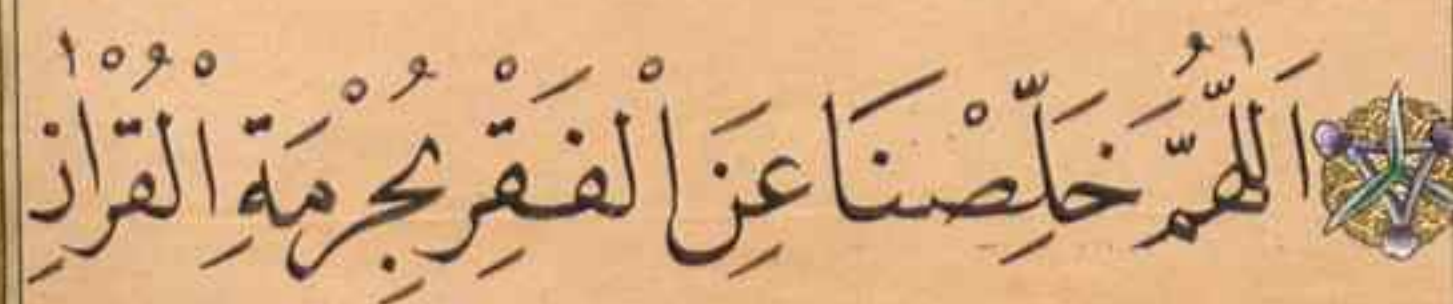 اَللّٰهُمَّ خَلِّصْنَا عَنِ الْفَقْرِ بِحُرْمَةِ الْقُرْاٰنِ